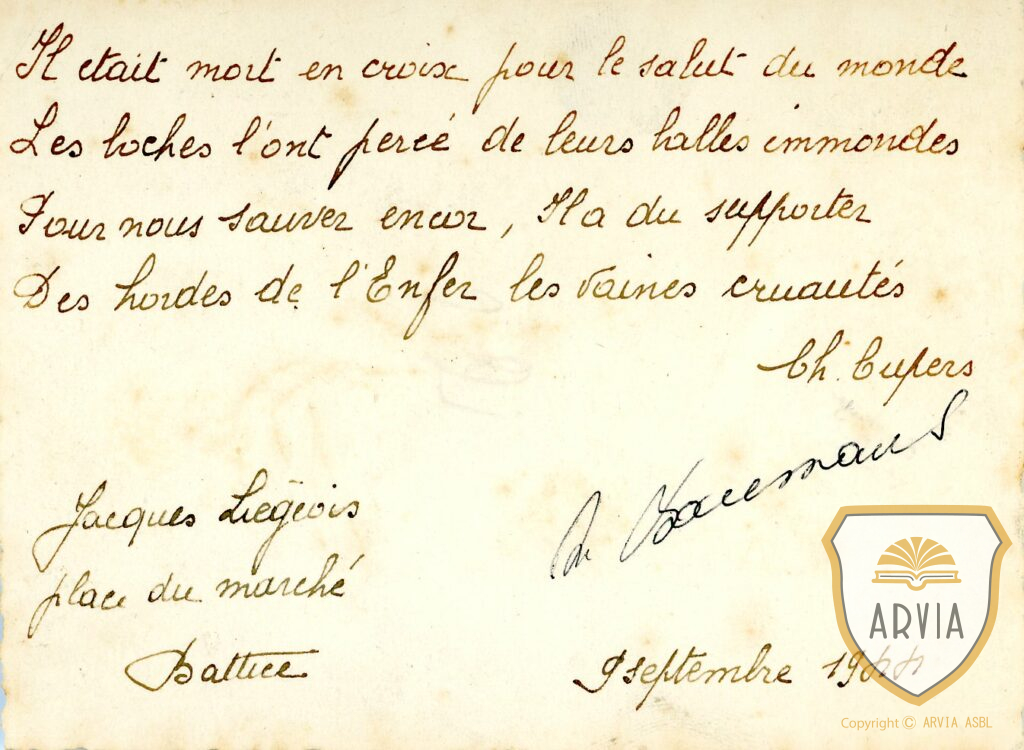 Il etait mort en croix pour le salut du monde
Les boches l'ont percé de leurs balles immondes
Pour nous sauver encor, Il a du supporter
Des hordes de l'Enfer les vaines cruautés
Ch. Cupers
Jacques Liégeois
place du marché
Battice
9 septembre 1944
ARVIA
Copyright © ARVIA ASBL